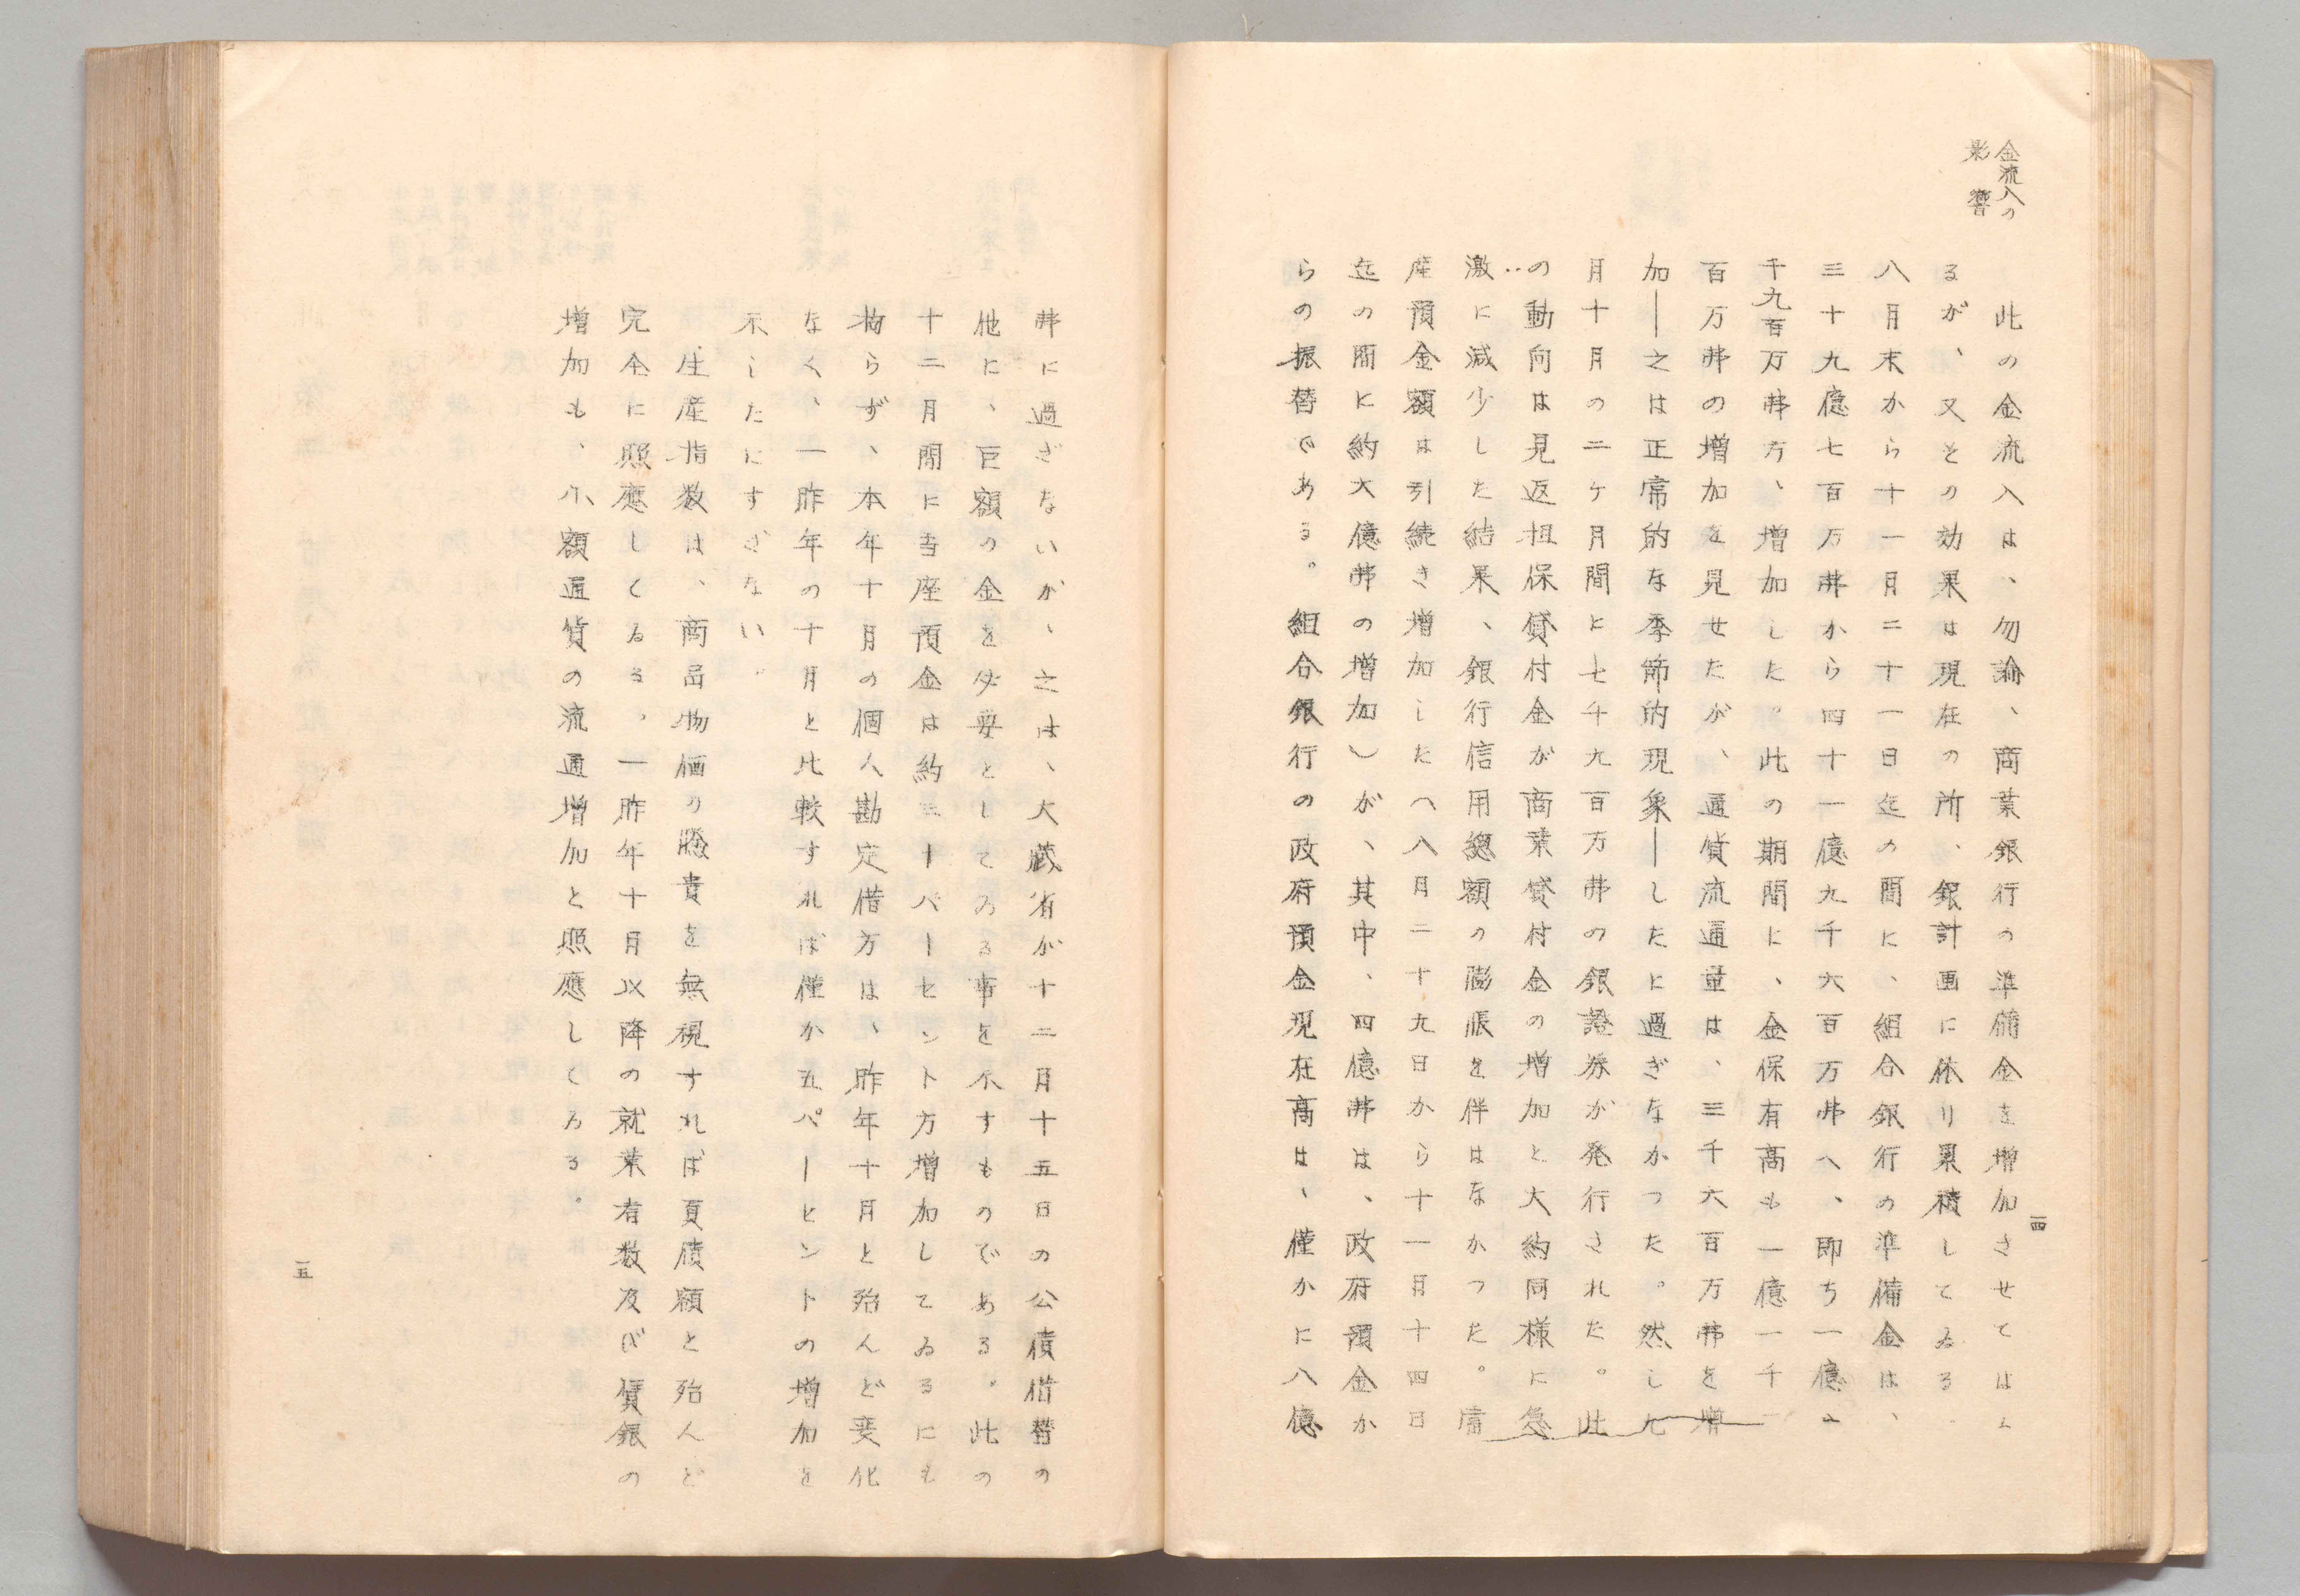 金流入の
影響
此の金流入は、勿論、商業銀行の準備金を増加させてはゐ
るが、又その効果は現在の所、銀計画に休り累積してゐる。
八月末から十一月二十一日迄の間に、組合銀行の準備金は、
三十九億七百万弗から四十一億九千六百万弗へ、即ち一億二
千九百万弗方、増加した。此の期間に、金保有高も一億一千一
百万弗の増加を見せたが、通貨流通量は、三千六百万弗を増
加―之は正常的な季節的現象―したに過ぎなかつた。然し九
月十月の二ヶ月間に七千九百万弗の銀證券が発行された。此
の動向は見返担保貸付金が商業貸付金の増加と大約同様に急
激に減少した結果、銀行信用總額の膨脹を伴はなかつた。當
座預金額は引続き増加した(八月二十九日から十一月十四日
迄の間に約六億弗の増加)が、其中、四億弗は、政府預金か
らの振替である。組合銀行の政府預金現在高は、僅かに八億
一四
弗に過ぎないが、之は、大蔵省が十二月十五日の公債借替の
他に、巨額の金を必要としてゐる事を示すものである。此の
十二月間に当座預金は約二十パーセント方増加してゐるにも
拘らず、本年十月の個人勘定借方は、昨年十月と殆んど変化
なく、一昨年の十月と比較すれば僅か五パーセントの増加を
示したにすぎない。
生産指数は、商品物価の騰貴を無視すれば負債額と殆んど
完全に照應してゐる。一昨年十月以降の就業者数及び賃銀の
増加も、小額通貨の流通増加と照應してゐる。
一五